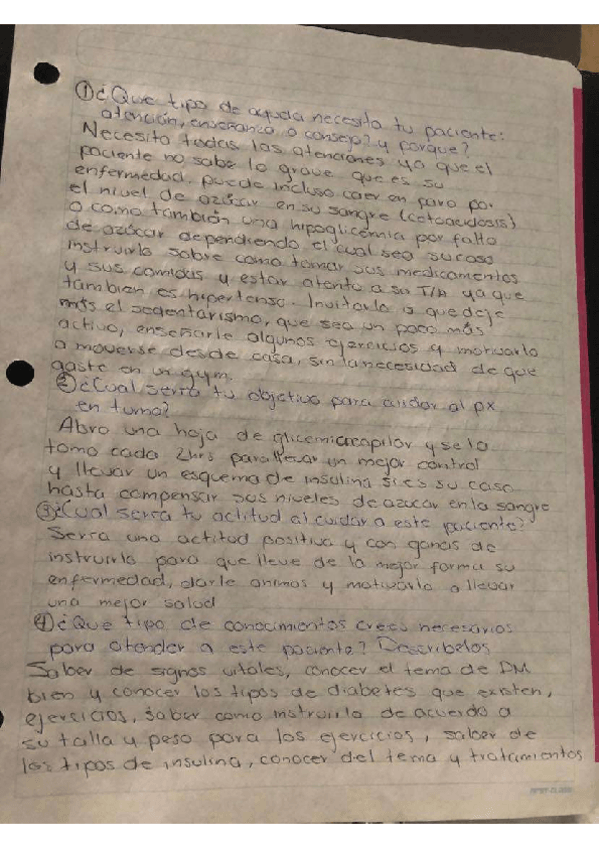 ①¿Que tipo de ayuda necesita tu paciente:
atención, enseñanza o consejo? y porque?
Necesita todas las atenciones ya que el
paciente no sabe lo grave que es su
enfermedad, puede incluso caer en paro por
el nivel de azúcar en su sangre (cetoacidosis)
o como también una hipoglicemia por falta
de azúcar dependiendo el cual sea su caso
instruirlo sobre como tomar sus medicamentos
y sus comidas y estar atento a su T/A ya que
tambien es hipertenso. Invitarlo a que deje
más el sedentarismo, que sea un poco más
activo, enseñarle algunos ejercicios y motivarlo
a moverse desde casa, sin la necesidad de que
gaste en un gym.
②¿Cual seria tu objetivo para ayudar al px
en turno?
Abro una hoja de glicemia capilar y se la
tomo cada 2hrs para llevar un mejor control
y llevar un esquema de insulina si es su caso
hasta compensar sus niveles de azucar en la sangre
③¿Cual seria tu actitud al cuidar a este paciente?
Seria una actitud positiva y con ganas de
instruirlo para que lleve de la mejor forma su
enfermedad, darle animos y motivarlo a llevar
una mejor salud
④¿Que tipo de conocimientos crees necesarios
para atender a este paciente? Describelos
Saber de signos vitales, conocer el tema de DM
bien y conocer los tipos de diabetes que existen,
ejercicios, saber como instruirlo de acuerdo a
su talla y peso para los ejercicios, saber de
los tipos de insulina, conocer del tema y tratamientos